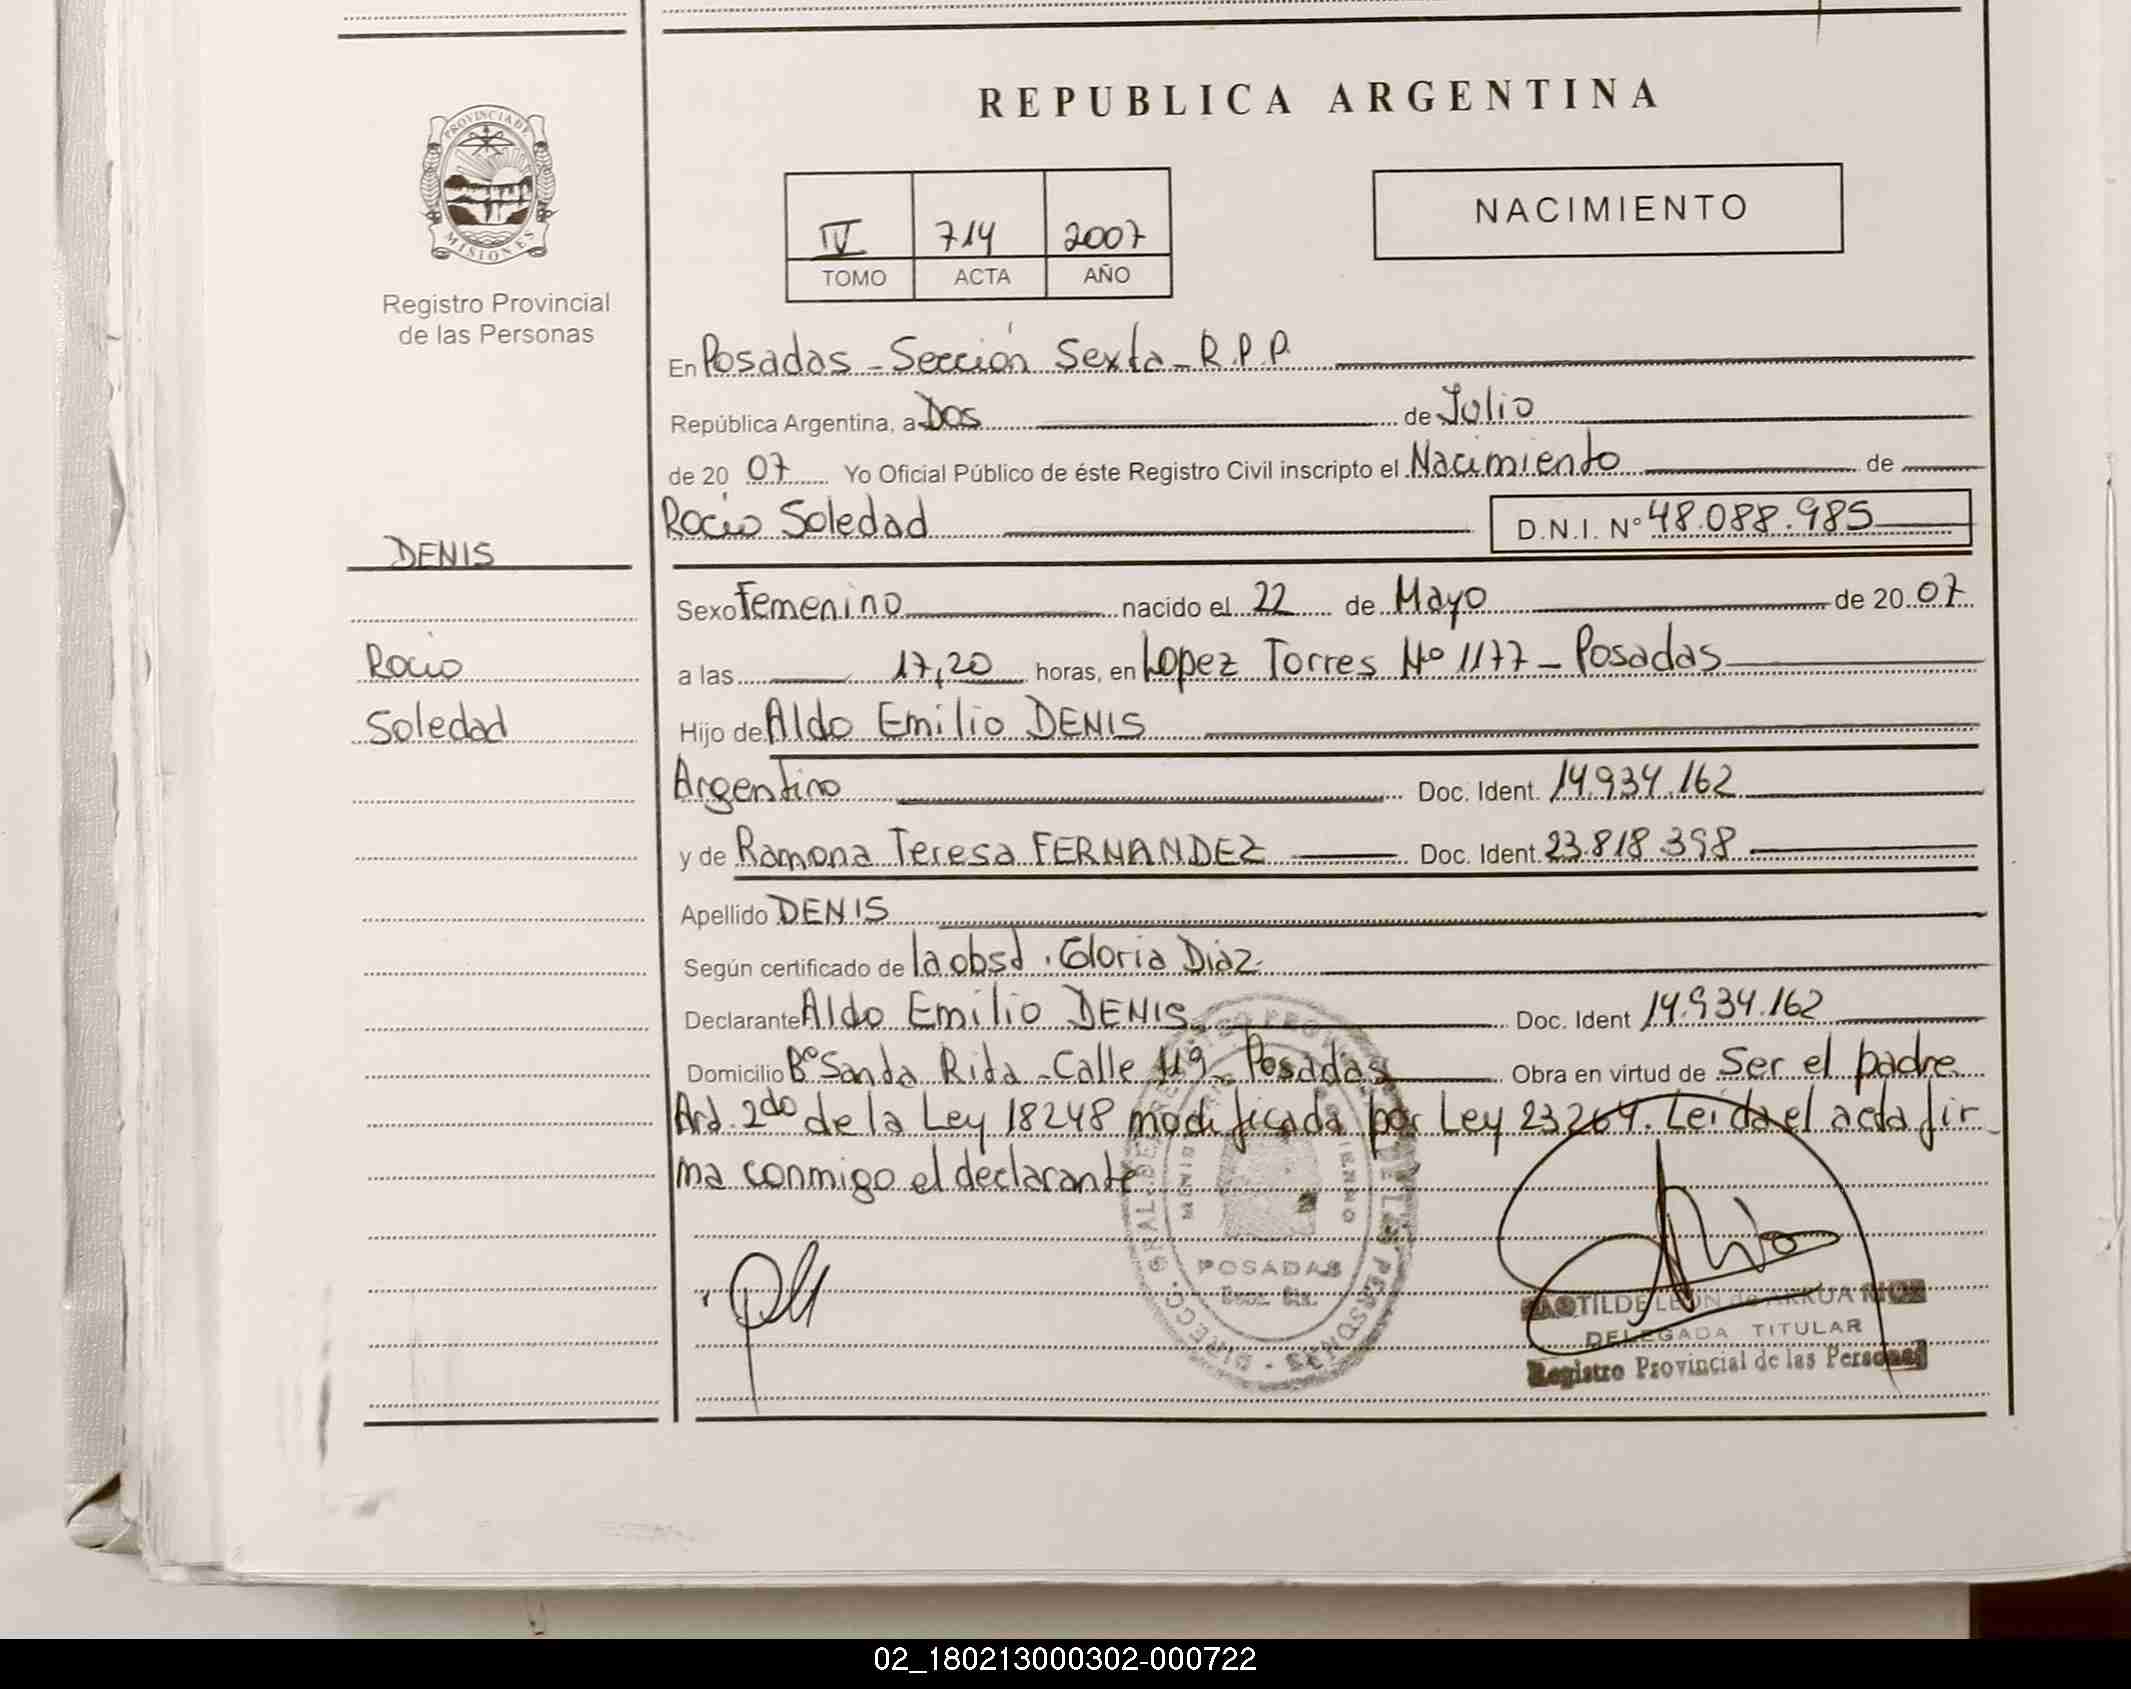 PROVINCIA DE
MISIONES
Registro Provincial
de las Personas
DENIS
Rocio
Soledad
REPUBLICA ARGENTINA
IV 714 2007
TOMO ACTA AÑO
NACIMIENTO
En Posadas - Sección Sexta - R.P.P.
República Argentina, a Dos de Julio
de 20 07 Yo Oficial Público de éste Registro Civil inscripto el Nacimiento de
Rocio Soledad D.N.I. Nº 48.088.985
Sexo Femenino nacido el 22 de Mayo de 20 07
a las 17,20 horas, en Lopez Torres Nº 1177 - Posadas
Hijo de Aldo Emilio DENIS
Argentino Doc. Ident. 14.934.162
y de Ramona Teresa FERNANDEZ Doc. Ident. 23.818.398
Apellido DENIS
Según certificado de la obst. Gloria Diaz
Declarante Aldo Emilio DENIS Doc. Ident 14.934.162
Domicilio Bº Santa Rita - Calle 119 - Posadas Obra en virtud de Ser el padre
Art. 2do de la Ley 18248 modificada por Ley 23264. Leída el acta fir
ma conmigo el declarante
POSADAS
DELEGADA TITULAR
Registro Provincial de las Personas
02_180213000302-000722